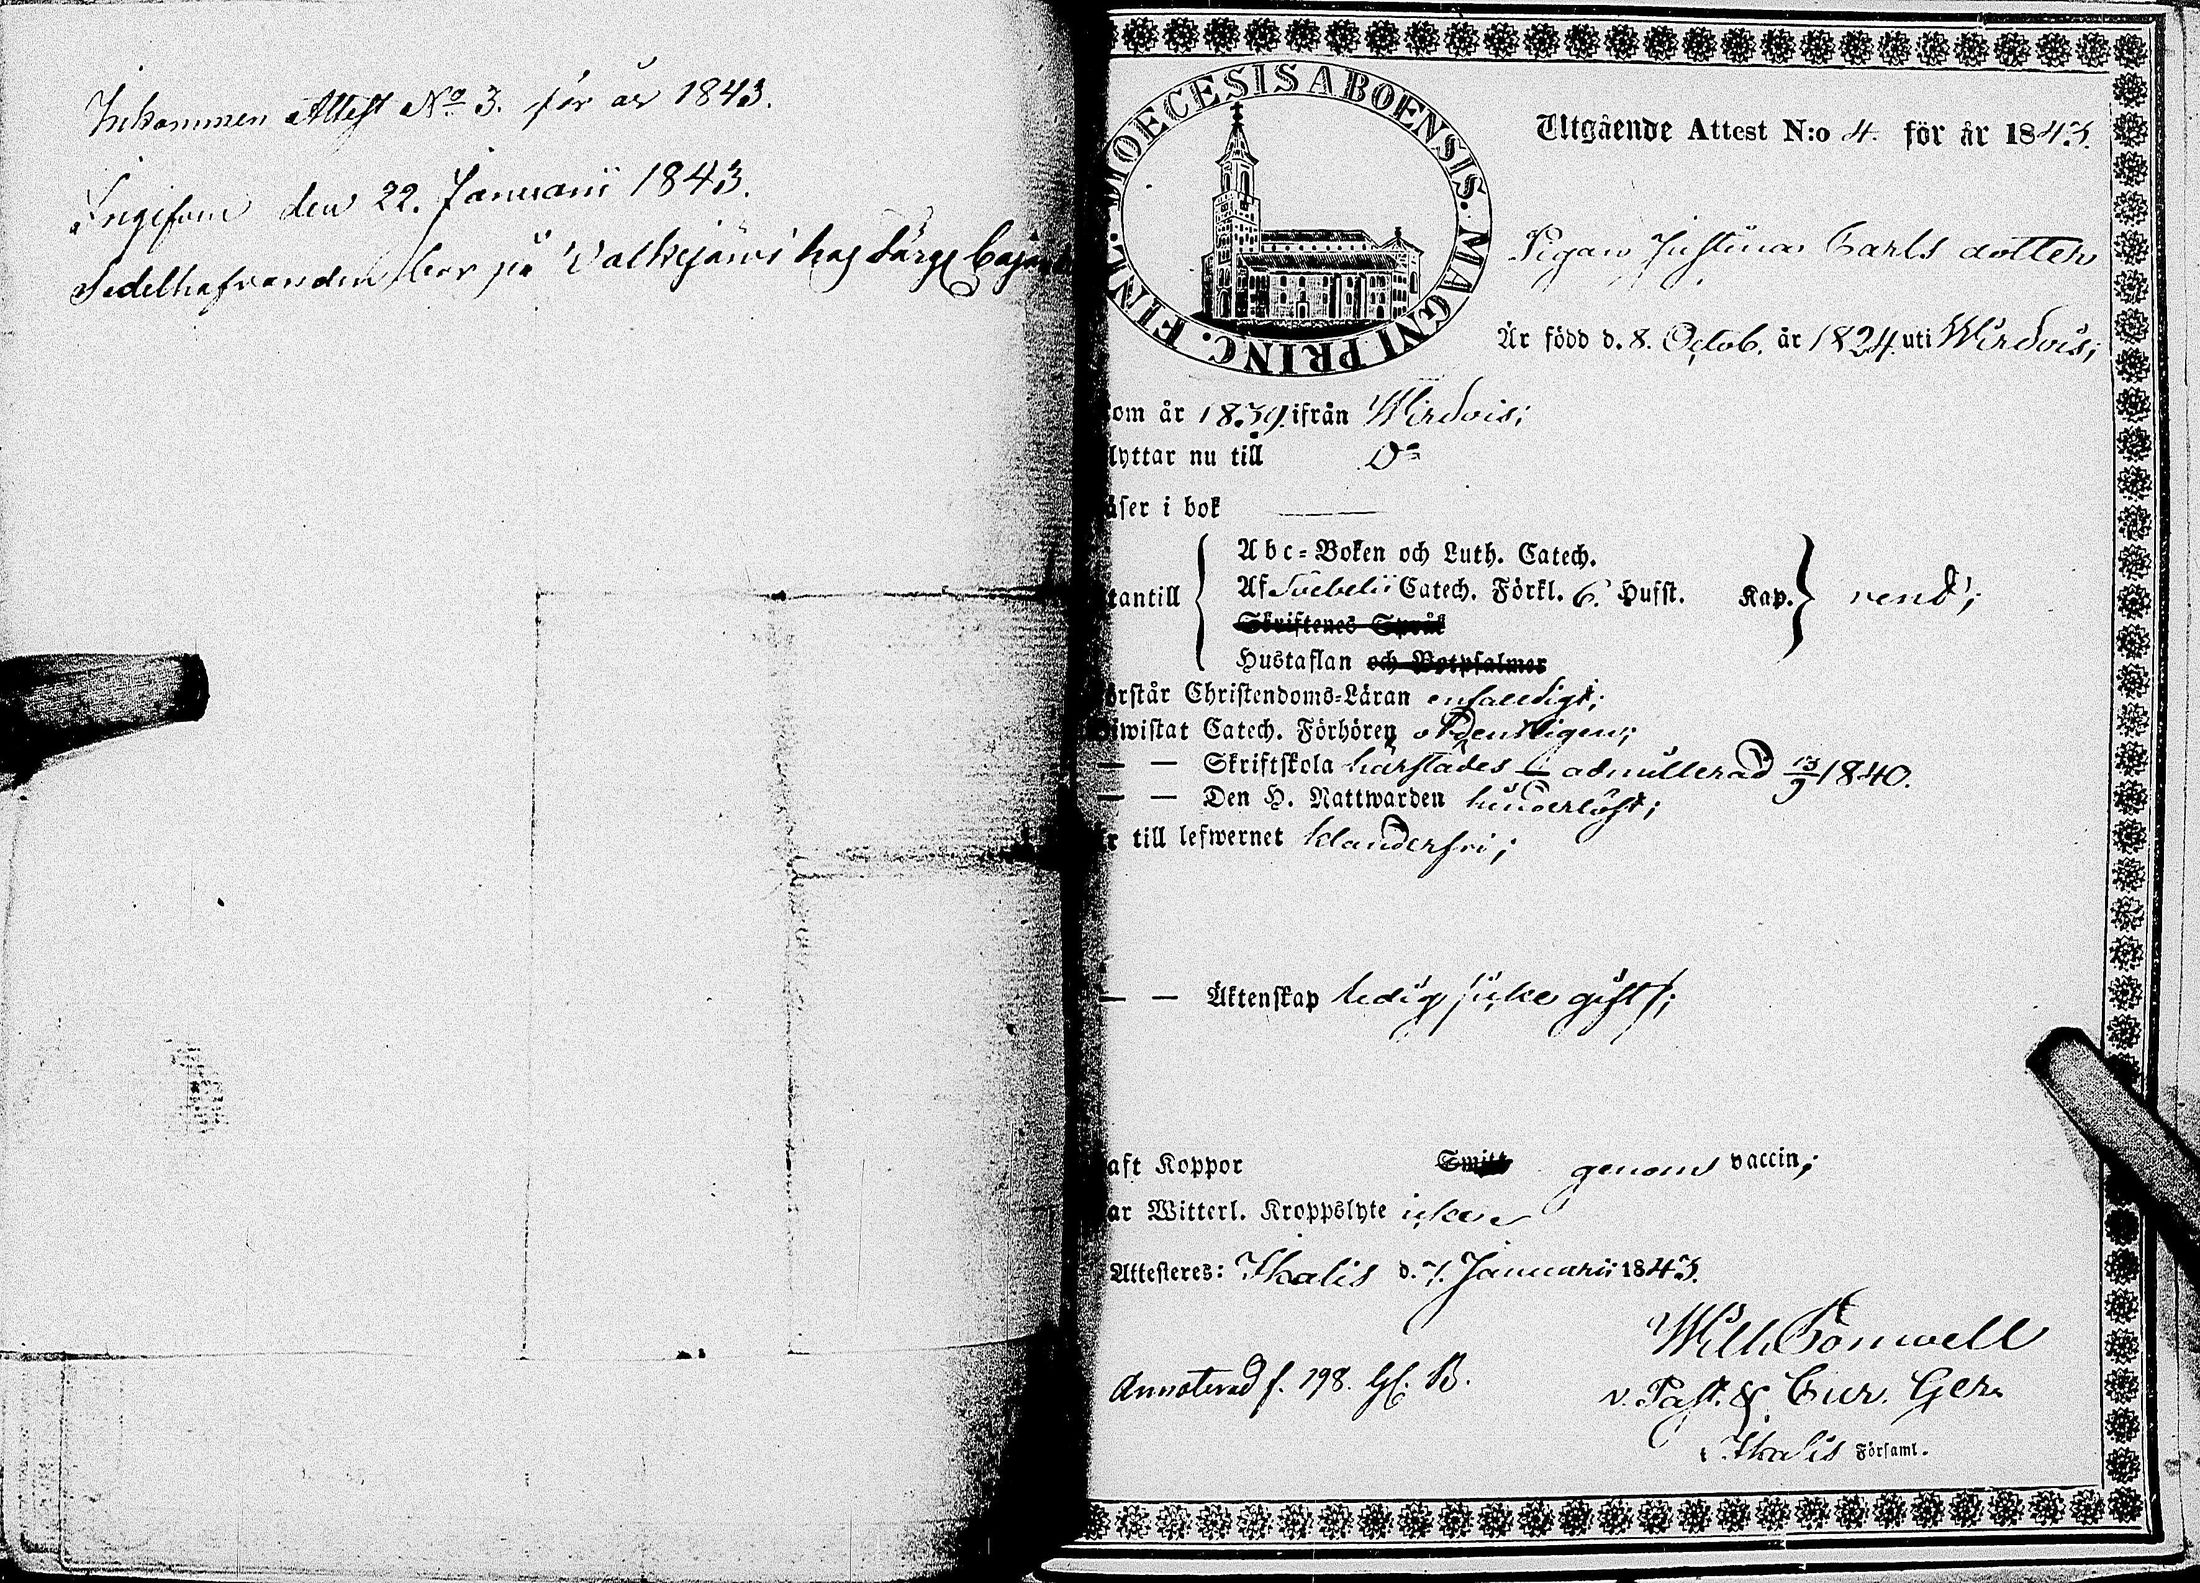 Inkommen Attest No 3. för år 1843.
Ingifven den 22. Januarii 1843.
Sedelhafvanden bor på Valkejärvi
MOECESIS ABOENSIS. MAGNI PRINC. FINL.
Utgående Attest N:o 4. för år 1843.
Pigan Justina Carls dotter
Är född d. 8. Octob. år 1824. uti Wirdois;
om år 1839. ifrån Wirdois;
lyttar nu till Do
äser i bok
Abc-Boken och Luth. Catech.
tantill Af Svebelii Catech. Förkl. 6. Hufst. Kap. rent;
Skriftenes Språk
Hustaflan och Botpsalmer
örstår Christendoms-Läran enfaldigt;
iwistat Catech. Förhören ordentligen;
— — Skriftskola härstädes admitterad 13/9 1840.
— — Den H. Nattwarden hinderlöst;
r till lefwernet klanderfri;
— — Äktenskap ledig, icke gift;
aft Koppor Smitt genom vaccin;
ar Witterl. Kroppslyte icke
Attesteres: Ikalis d. 7. Januarii 1843.
Wilh. Bönwell
Annoterad f. 198. Gl. B.
v. Past. & Cur. Ger.
i Ikalis Församl.